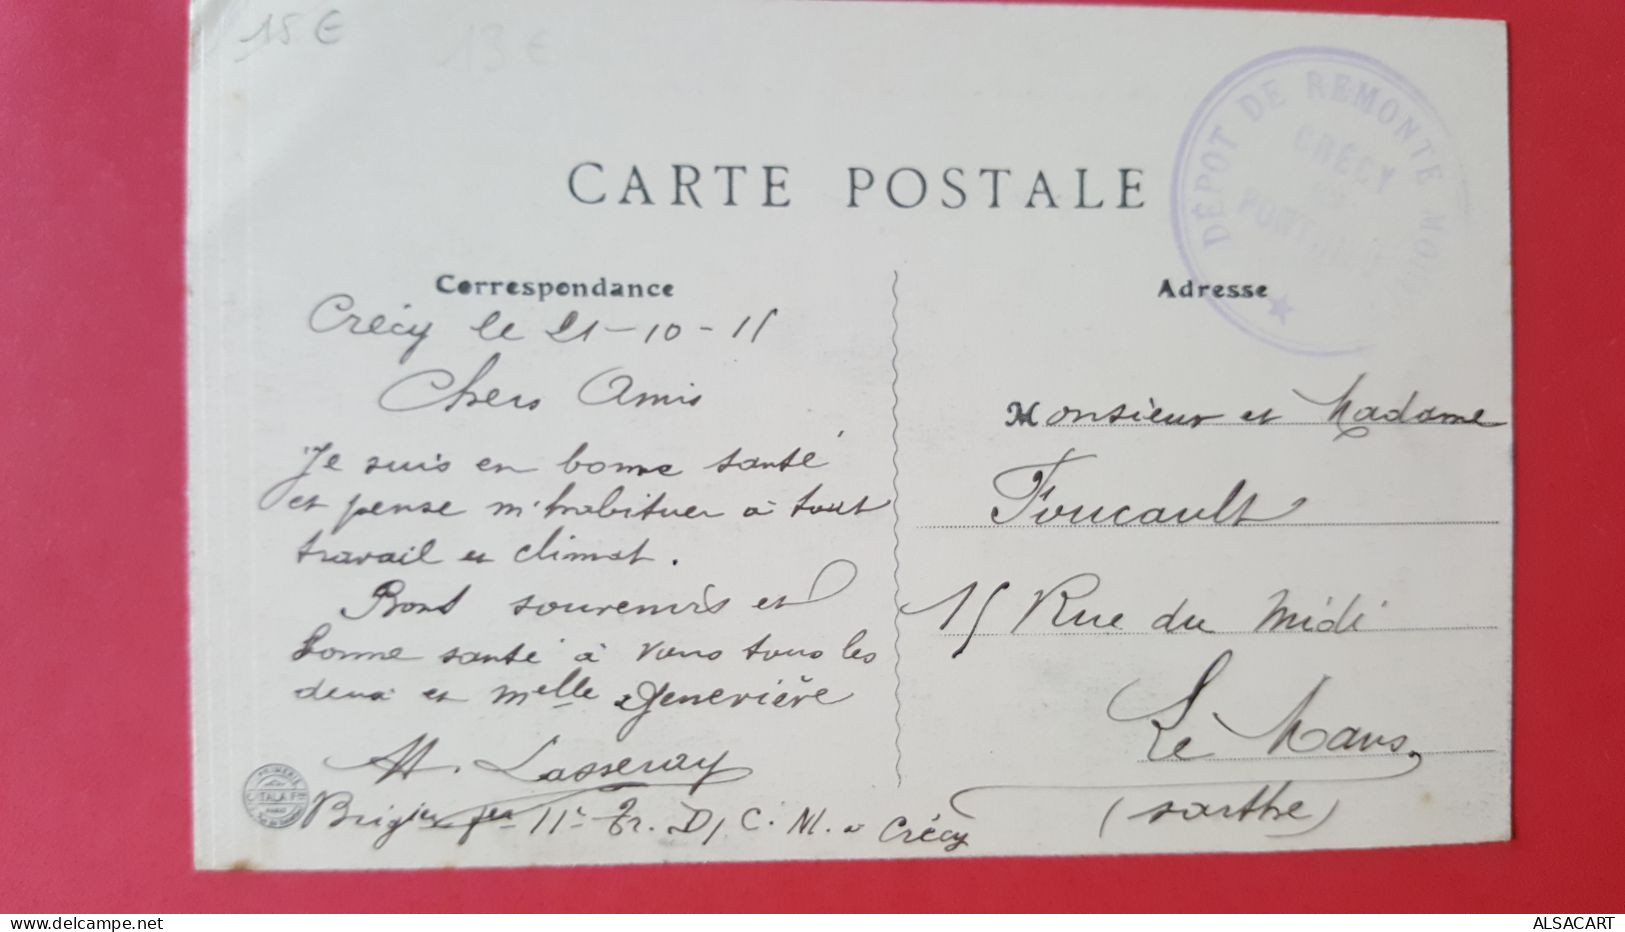 15 €
13 €
DÉPÔT DE REMONTE MO
CRÉCY
CARTE POSTALE
Correspondance
Adresse
Crécy le 21-10-15
Chers Amis
Je suis en bonne santé
et pense m'habituer à tout
travail et climat.
Bons souvenirs et
bonne santé à vous tous les
deux et Melle Geneviève
H. Lasseray
Brigier 11e D, C. M. à Crécy
Monsieur et Madame
Foucault
15 Rue du Midi
Le Mans
(Sarthe)
ALSACART